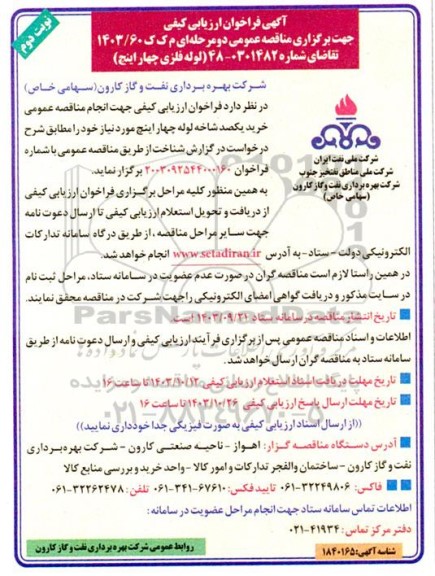 نوبت دوم
آگهی فراخوان ارزیابی کیفی
جهت برگزاری مناقصه عمومی دو مرحله‌ای م ک ک ۱۴۰۳/۶۰
تقاضای شماره ۰۳۰۱۴۸۲-۴۸ (لوله فلزی چهار اینچ)
شرکت ملی نفت ایران
شرکت ملی مناطق نفتخیز جنوب
شرکت بهره برداری نفت و گاز کارون
(سهامی خاص)
شرکت بهره برداری نفت و گاز کارون (سهامی خاص)
در نظر دارد فراخوان ارزیابی کیفی جهت انجام مناقصه عمومی
خرید یکصد شاخه لوله چهار اینچ مورد نیاز خود را مطابق شرح
درخواست در گزارش شناخت از طریق مناقصه عمومی با شماره
فراخوان ۲۰۰۳۰۹۲۵۴۴۰۰۰۱۶۰ برگزار نماید.
به همین منظور کلیه مراحل برگزاری فراخوان ارزیابی کیفی
از دریافت و تحویل استعلام ارزیابی کیفی تا ارسال دعوت نامه
جهت سایر مراحل مناقصه، از طریق درگاه سامانه تدارکات
الکترونیکی دولت - ستاد- به آدرس www.setadiran.ir انجام خواهد شد.
در همین راستا لازم است مناقصه گران در صورت عدم عضویت در سامانه ستاد، مراحل ثبت نام
در سایت مذکور و دریافت گواهی امضای الکترونیکی را جهت شرکت در مناقصه محقق نمایند.
تاریخ انتشار مناقصه در سامانه ستاد ۱۴۰۳/۰۹/۲۱ است.
اطلاعات و اسناد مناقصه عمومی پس از برگزاری فرآیند ارزیابی کیفی و ارسال دعوت نامه از طریق
سامانه ستاد به مناقصه گران ارسال خواهد شد.
تاریخ مهلت دریافت اسناد استعلام ارزیابی کیفی ۱۴۰۳/۱۰/۱۲ تا ساعت ۱۶
تاریخ مهلت ارسال پاسخ ارزیابی کیفی ۱۴۰۳/۱۰/۲۶ تا ساعت ۱۶
((از ارسال اسناد ارزیابی کیفی به صورت فیزیکی جدا خودداری نمایید))
آدرس دستگاه مناقصه گزار: اهواز - ناحیه صنعتی کارون - شرکت بهره برداری
نفت و گاز کارون - ساختمان والفجر تدارکات و امور کالا - واحد خرید و بررسی منابع کالا
فاکس: ۳۲۲۴۹۸۰۶-۰۶۱ تایید فکس: ۶۷۶۱۰-۳۴۱-۰۶۱ تلفن: ۳۲۲۶۲۴۷۸-۰۶۱
اطلاعات تماس سامانه ستاد جهت انجام مراحل عضویت در سامانه:
دفتر مرکز تماس: ۴۱۹۳۴-۰۲۱
شناسه آگهی: ۱۸۴۰۱۶۵
روابط عمومی شرکت بهره برداری نفت و گاز کارون
ParsNamadData
۰۲۱-۸۸۳۴۹۶۷۰-۵